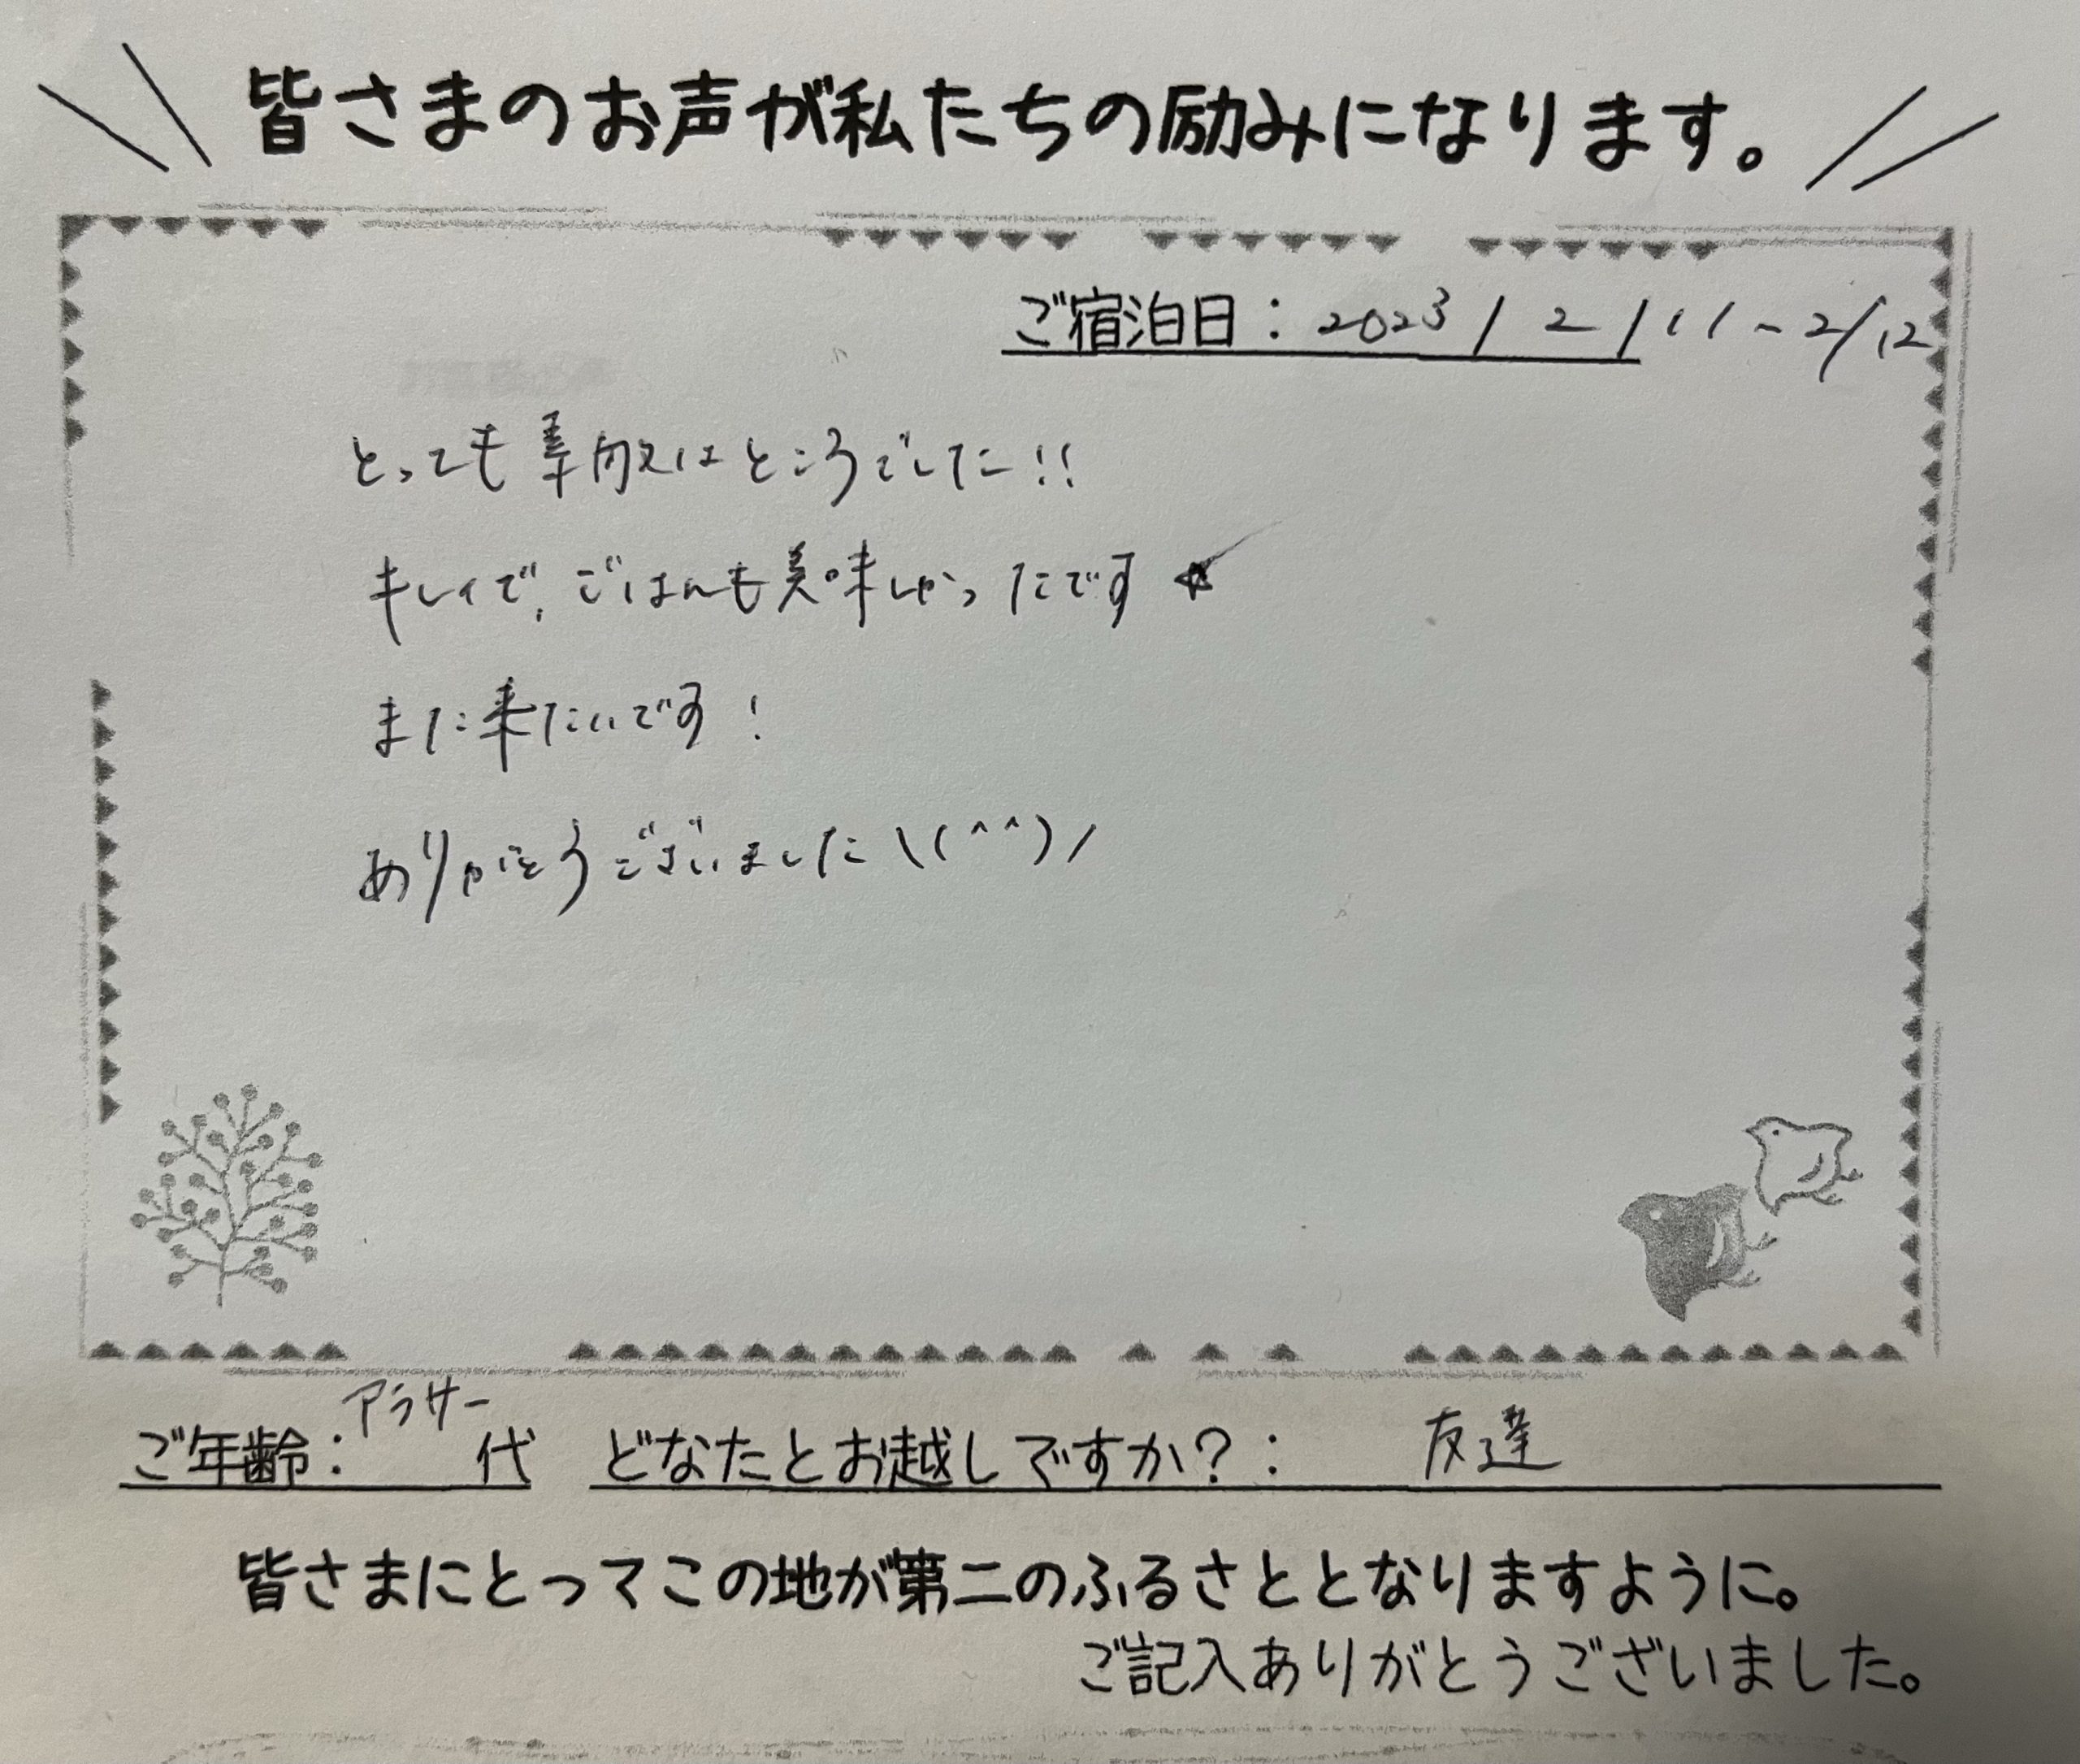 皆さまのお声が私たちの励みになります。
ご宿泊日：2023/2/11~2/12
とっても素敵なところでした!!
キレイで、ごはんも美味しかったです★
また来たいです!
ありがとうございました\(^^)/
ご年齢：アラサー代 どなたとお越しですか?：友達
皆さまにとってこの地が第二のふるさととなりますように。
ご記入ありがとうございました。